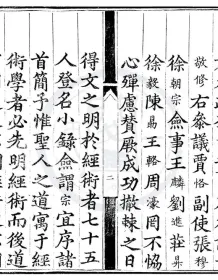 敬修右叅議賈恪副使張穆
徐朝宗僉事王麟劉進莊昇
徐毅陳昜王輅周濠罔不恊
心殫慮賛厥成功撤棘之日
二
得文之明於經術者七十五
人登名小錄僉謂宗宜序諸
首簡予惟聖人之道寓于經
術學者必先明經術而後道